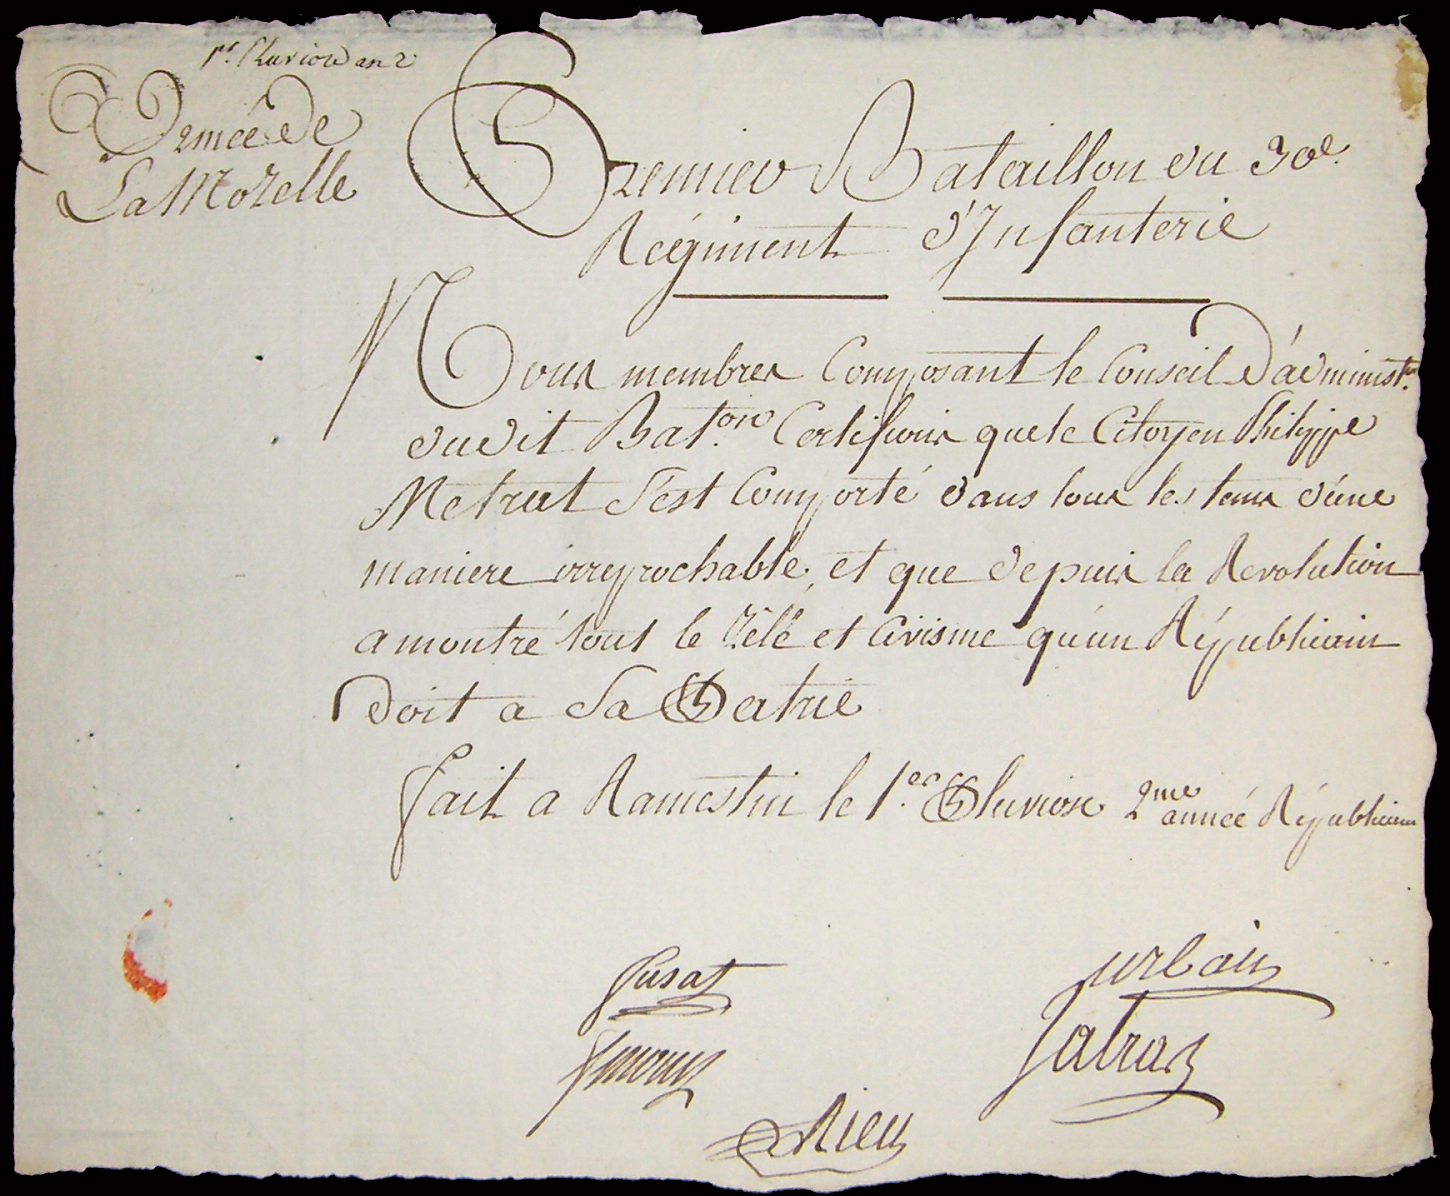 1er. Pluviose an 2
Armée de
La Mozelle
Premier Bataillon du 30e.
Régiment d'Infanterie
Nous membres Composant le Conseil d'administ.on
du dit Bat.on Certifions que le Citoyen Philippe
Metrat S'est Comporté dans tous les tems d'une
maniere irreprochable, et que depuis la Revolution
a montré tout le Zêle et Civisme qu'un Républicain
doit a Sa Patrie
fait a Ramestin le 1.er Pluviose 2me année Républicain
Jusat
urbain
Jatras
Rieu